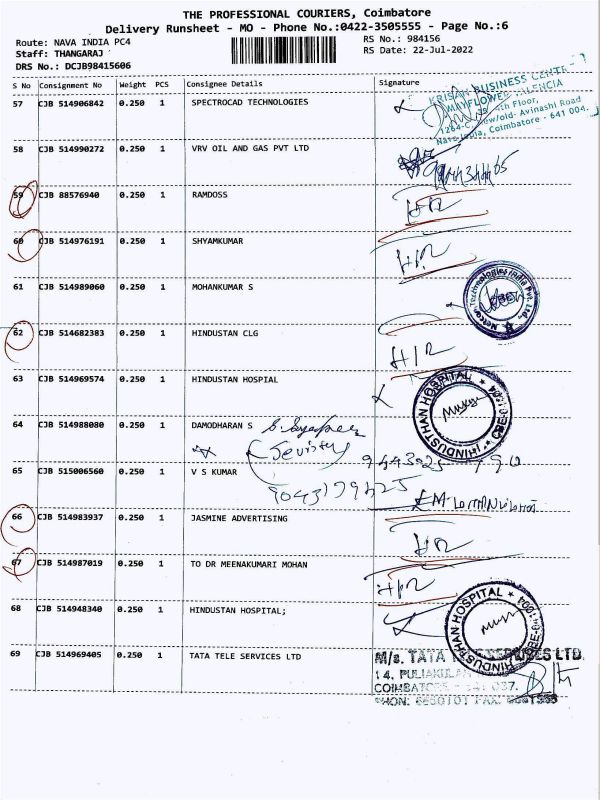 THE PROFESSIONAL COURIERS, Coimbatore
Delivery Runsheet - MO - Phone No.:0422-3505555 - Page No.:6
Route: NAVA INDIA PC4 RS No.: 984156
Staff: THANGARAJ RS Date: 22-Jul-2022
DRS No.: DCJB98415606
S No Consignment No Weight PCS Consignee Details Signature
57 CJB 514906842 0.250 1 SPECTROCAD TECHNOLOGIES
KRISAN BUSINESS CENTRE
MAYFLOWER VALENCIA
4th Floor,
1264-C, New/old- Avinashi Road
Nava India, Coimbatore - 641 004.
58 CJB 514990272 0.250 1 VRV OIL AND GAS PVT LTD
59 CJB 88576940 0.250 1 RAMDOSS
H/R
60 CJB 514976191 0.250 1 SHYAMKUMAR
H/R
61 CJB 514989060 0.250 1 MOHANKUMAR S
Technologies India Pvt. Ltd.,
62 CJB 514682383 0.250 1 HINDUSTAN CLG
H/R
63 CJB 514969574 0.250 1 HINDUSTAN HOSPIAL
HINDUSTHAN HOSPITAL
64 CJB 514988080 0.250 1 DAMODHARAN S
65 CJB 515006560 0.250 1 V S KUMAR
66 CJB 514983937 0.250 1 JASMINE ADVERTISING
H/R
67 CJB 514987019 0.250 1 TO DR MEENAKUMARI MOHAN
H/R
68 CJB 514948340 0.250 1 HINDUSTAN HOSPITAL;
HINDUSTHAN HOSPITAL
69 CJB 514969405 0.250 1 TATA TELE SERVICES LTD
M/s. TATA SERVICES LTD.
14, PULIAKULAM
COIMBATORE - 641 037.